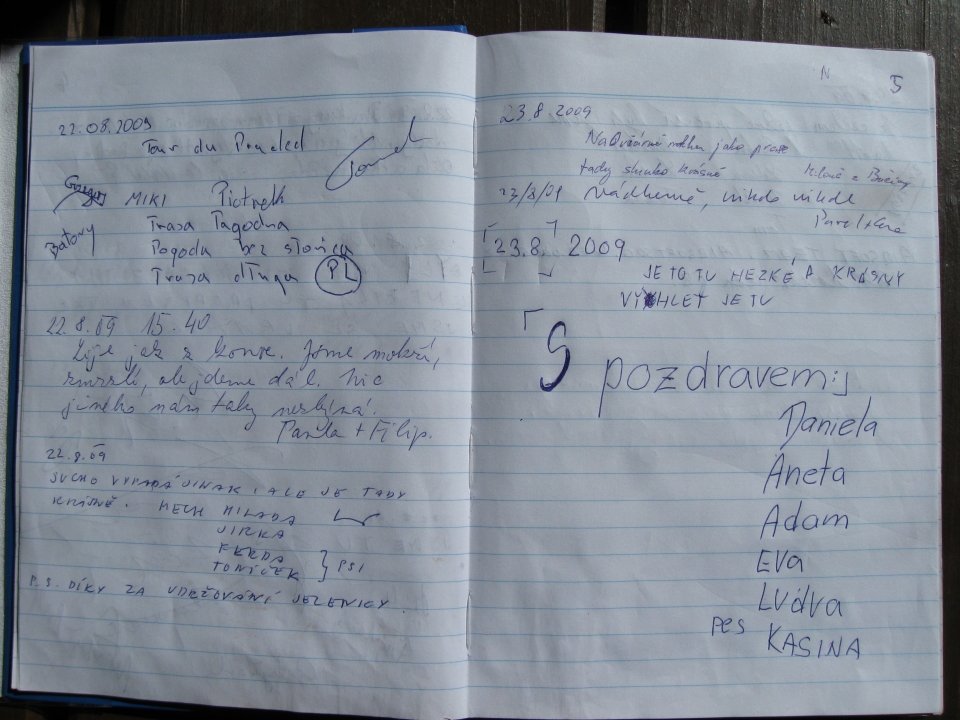 22.08.2009
Tour du
MIKI Piotrek
Batory
Trasa Pagodna
Pogoda bez słońca
Trasa długa PL
22.8.09 15.40
Lije jak z konve. Jsme mokří,
zmrzlí, ale jdeme dál. Nic
jiného nám taky nezbývá.
Pavla + Filip.
22.8.09
SUCHO VYPADÁ JINAK, ALE JE TADY
KRÁSNĚ. MILADA
JIRKA
FERDA
TONÍČEK } PSI
P.S. DÍKY ZA UDRŽOVÁNÍ JEZENICKY.
N 5
23.8.2009
jako prase
tady krásně
23/8/09 Nádherně, nikdo nikde
23.8. 2009
JE TO TU HEZKÉ A KRÁSNÝ
VÝHLET JE TU
S pozdravem:
Daniela
Aneta
Adam
Eva
Luďva
pes KASINA